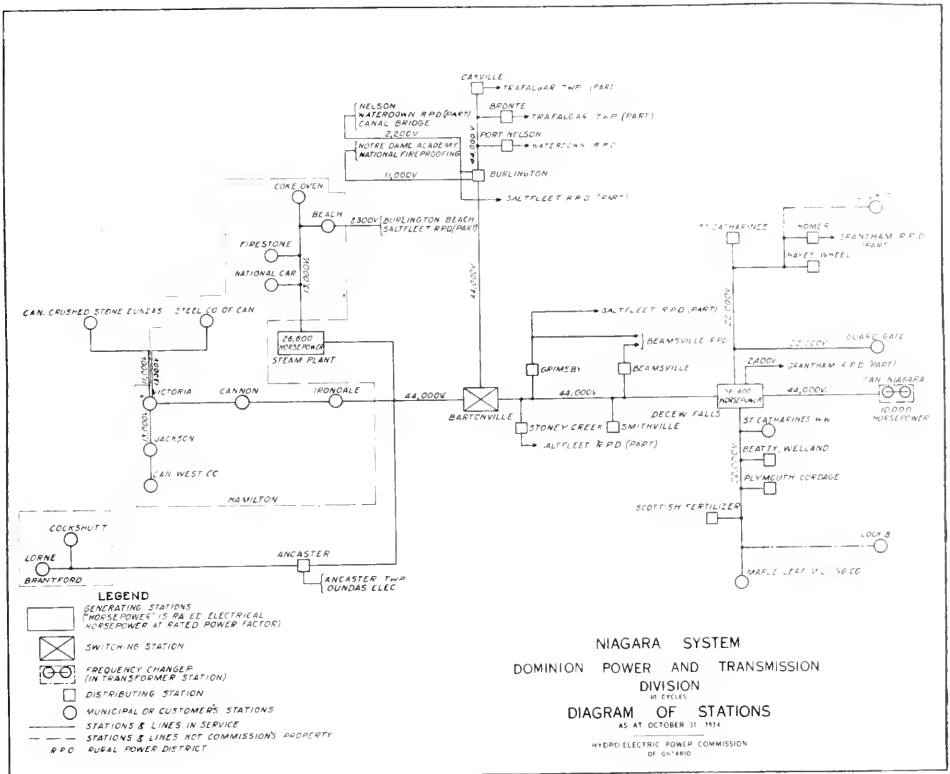 OAKVILLE
TRAFALGAR TWP (PART)
BRONTE
TRAFALGAR TWP (PART)
44,000V
PORT NELSON
WATERDOWN R.P.D
NELSON
WATERDOWN R.P.D (PART)
CANAL BRIDGE
2,200V
NOTRE DAME ACADEMY
NATIONAL FIREPROOFING
11,000V
BURLINGTON
SALTFLEET R.P.D (PART)
COKE OVEN
BEACH
2300V
BURLINGTON BEACH
SALTFLEET RPD(PART)
FIRESTONE
NATIONAL CAR
13,000V.
44,000V
26,800
HORSEPOWER
STEAM PLANT
CAN. CRUSHED STONE DUNDAS
STEEL CO OF CAN
VICTORIA
CANNON
IRONDALE
44,000V.
BARTONVILLE
13,000V
JACKSON
CAN WEST CO
HAMILTON
COCKSHUTT
LORNE
BRANTFORD
ANCASTER
ANCASTER TWP
DUNDAS ELEC
SALTFLEET R.P.D (PART)
BEAMSVILLE RPD
GRIMSBY
BEAMSVILLE
44,000V.
STONEY CREEK
SMITHVILLE
SALTFLEET R.P.D (PART)
ST CATHARINES
HOMER
GRANTHAM R.P.D
(PART
HAYES WHEEL
22,000V
22,000V
GUARD GATE
2,400V
GRANTHAM R.P.D (PART)
HORSEPOWER
DECEW FALLS
44,000V.
CAN. NIAGARA
10,000
HORSEPOWER
ST CATHARINES W.W.
BEATTY, WELLAND
22,000V
PLYMOUTH CORDAGE
SCOTTISH FERTILIZER
LOCK 8
MAPLE LEAF MILLING CO
LEGEND
GENERATING STATIONS
("HORSEPOWER" IS RATED ELECTRICAL
HORSEPOWER AT RATED POWER FACTOR)
SWITCHING STATION
FREQUENCY CHANGER
(IN TRANSFORMER STATION)
DISTRIBUTING STATION
MUNICIPAL OR CUSTOMER'S STATIONS
STATIONS & LINES IN SERVICE
STATIONS & LINES NOT COMMISSION'S PROPERTY
R P D RURAL POWER DISTRICT
NIAGARA SYSTEM
DOMINION POWER AND TRANSMISSION
DIVISION
CYCLES
DIAGRAM OF STATIONS
AS AT OCTOBER 31 1934
HYDRO-ELECTRIC POWER COMMISSION
OF ONTARIO